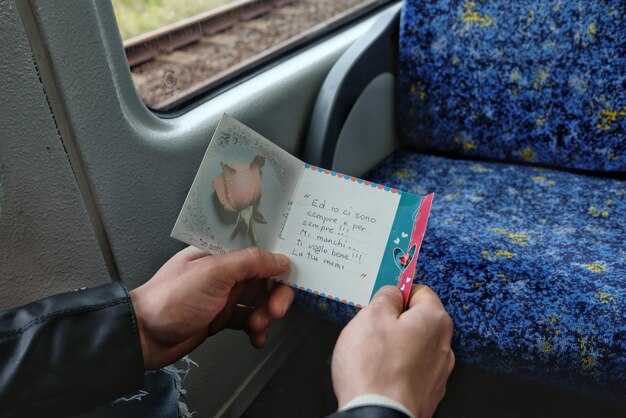 "Ed io ci sono
sempre e per
sempre!!!
Mi manchi...
ti voglio bene!!!
La tua mami"